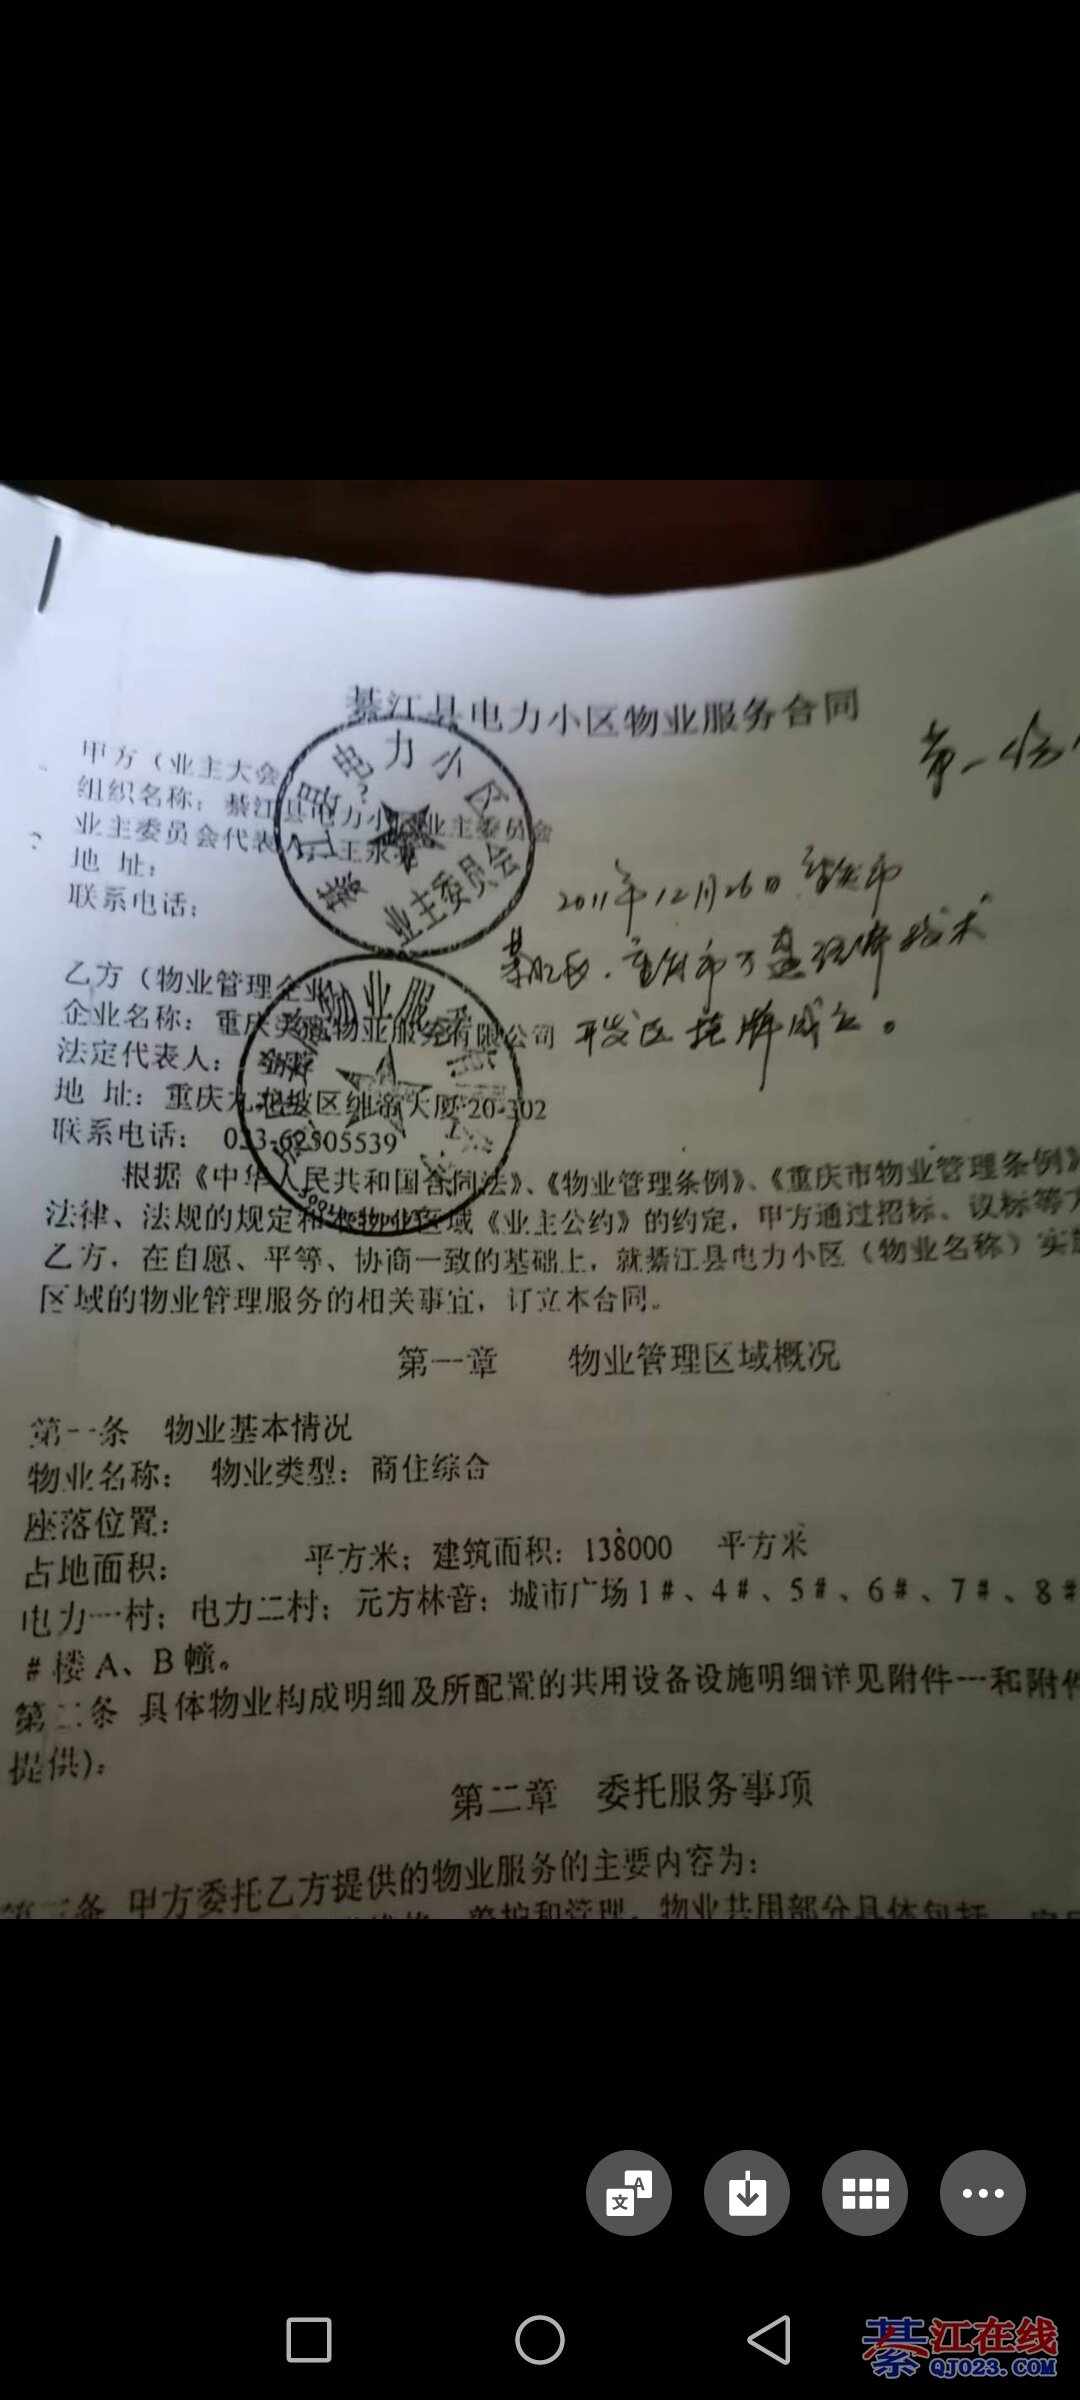 綦江县电力小区物业服务合同
甲方（业主大会
组织名称：綦江县电力小区业主委员会
业主委员会代表人：王永
地 址：
联系电话：
电力小区
业主委员会
第一
2011年12月26日
重庆市万盛经济技术
开发区挂牌成立。
乙方（物业管理企业
企业名称：重庆 物业服务有限公司
法定代表人：
地 址：重庆九龙坡区 大厦20-302
联系电话： 023-62305539
根据《中华人民共和国合同法》、《物业管理条例》、《重庆市物业管理条例》
法律、法规的规定和本物业区域《业主公约》的约定，甲方通过招标、议标等方
乙方，在自愿、平等、协商一致的基础上，就綦江县电力小区（物业名称）实施
区域的物业管理服务的相关事宜，订立本合同。
第一章 物业管理区域概况
第一条 物业基本情况
物业名称： 物业类型：商住综合
座落位置：
占地面积： 平方米；建筑面积：138000 平方米
电力一村；电力二村；元方林音；城市广场1#、4#、5#、6#、7#、8#
#楼A、B幢。
第二条 具体物业构成明细及所配置的共用设备设施明细详见附件一和附件
提供）：
第二章 委托服务事项
第三条 甲方委托乙方提供的物业服务的主要内容为：
养护和管理，物业共用部分具体包括
綦江在线
QJ023.COM